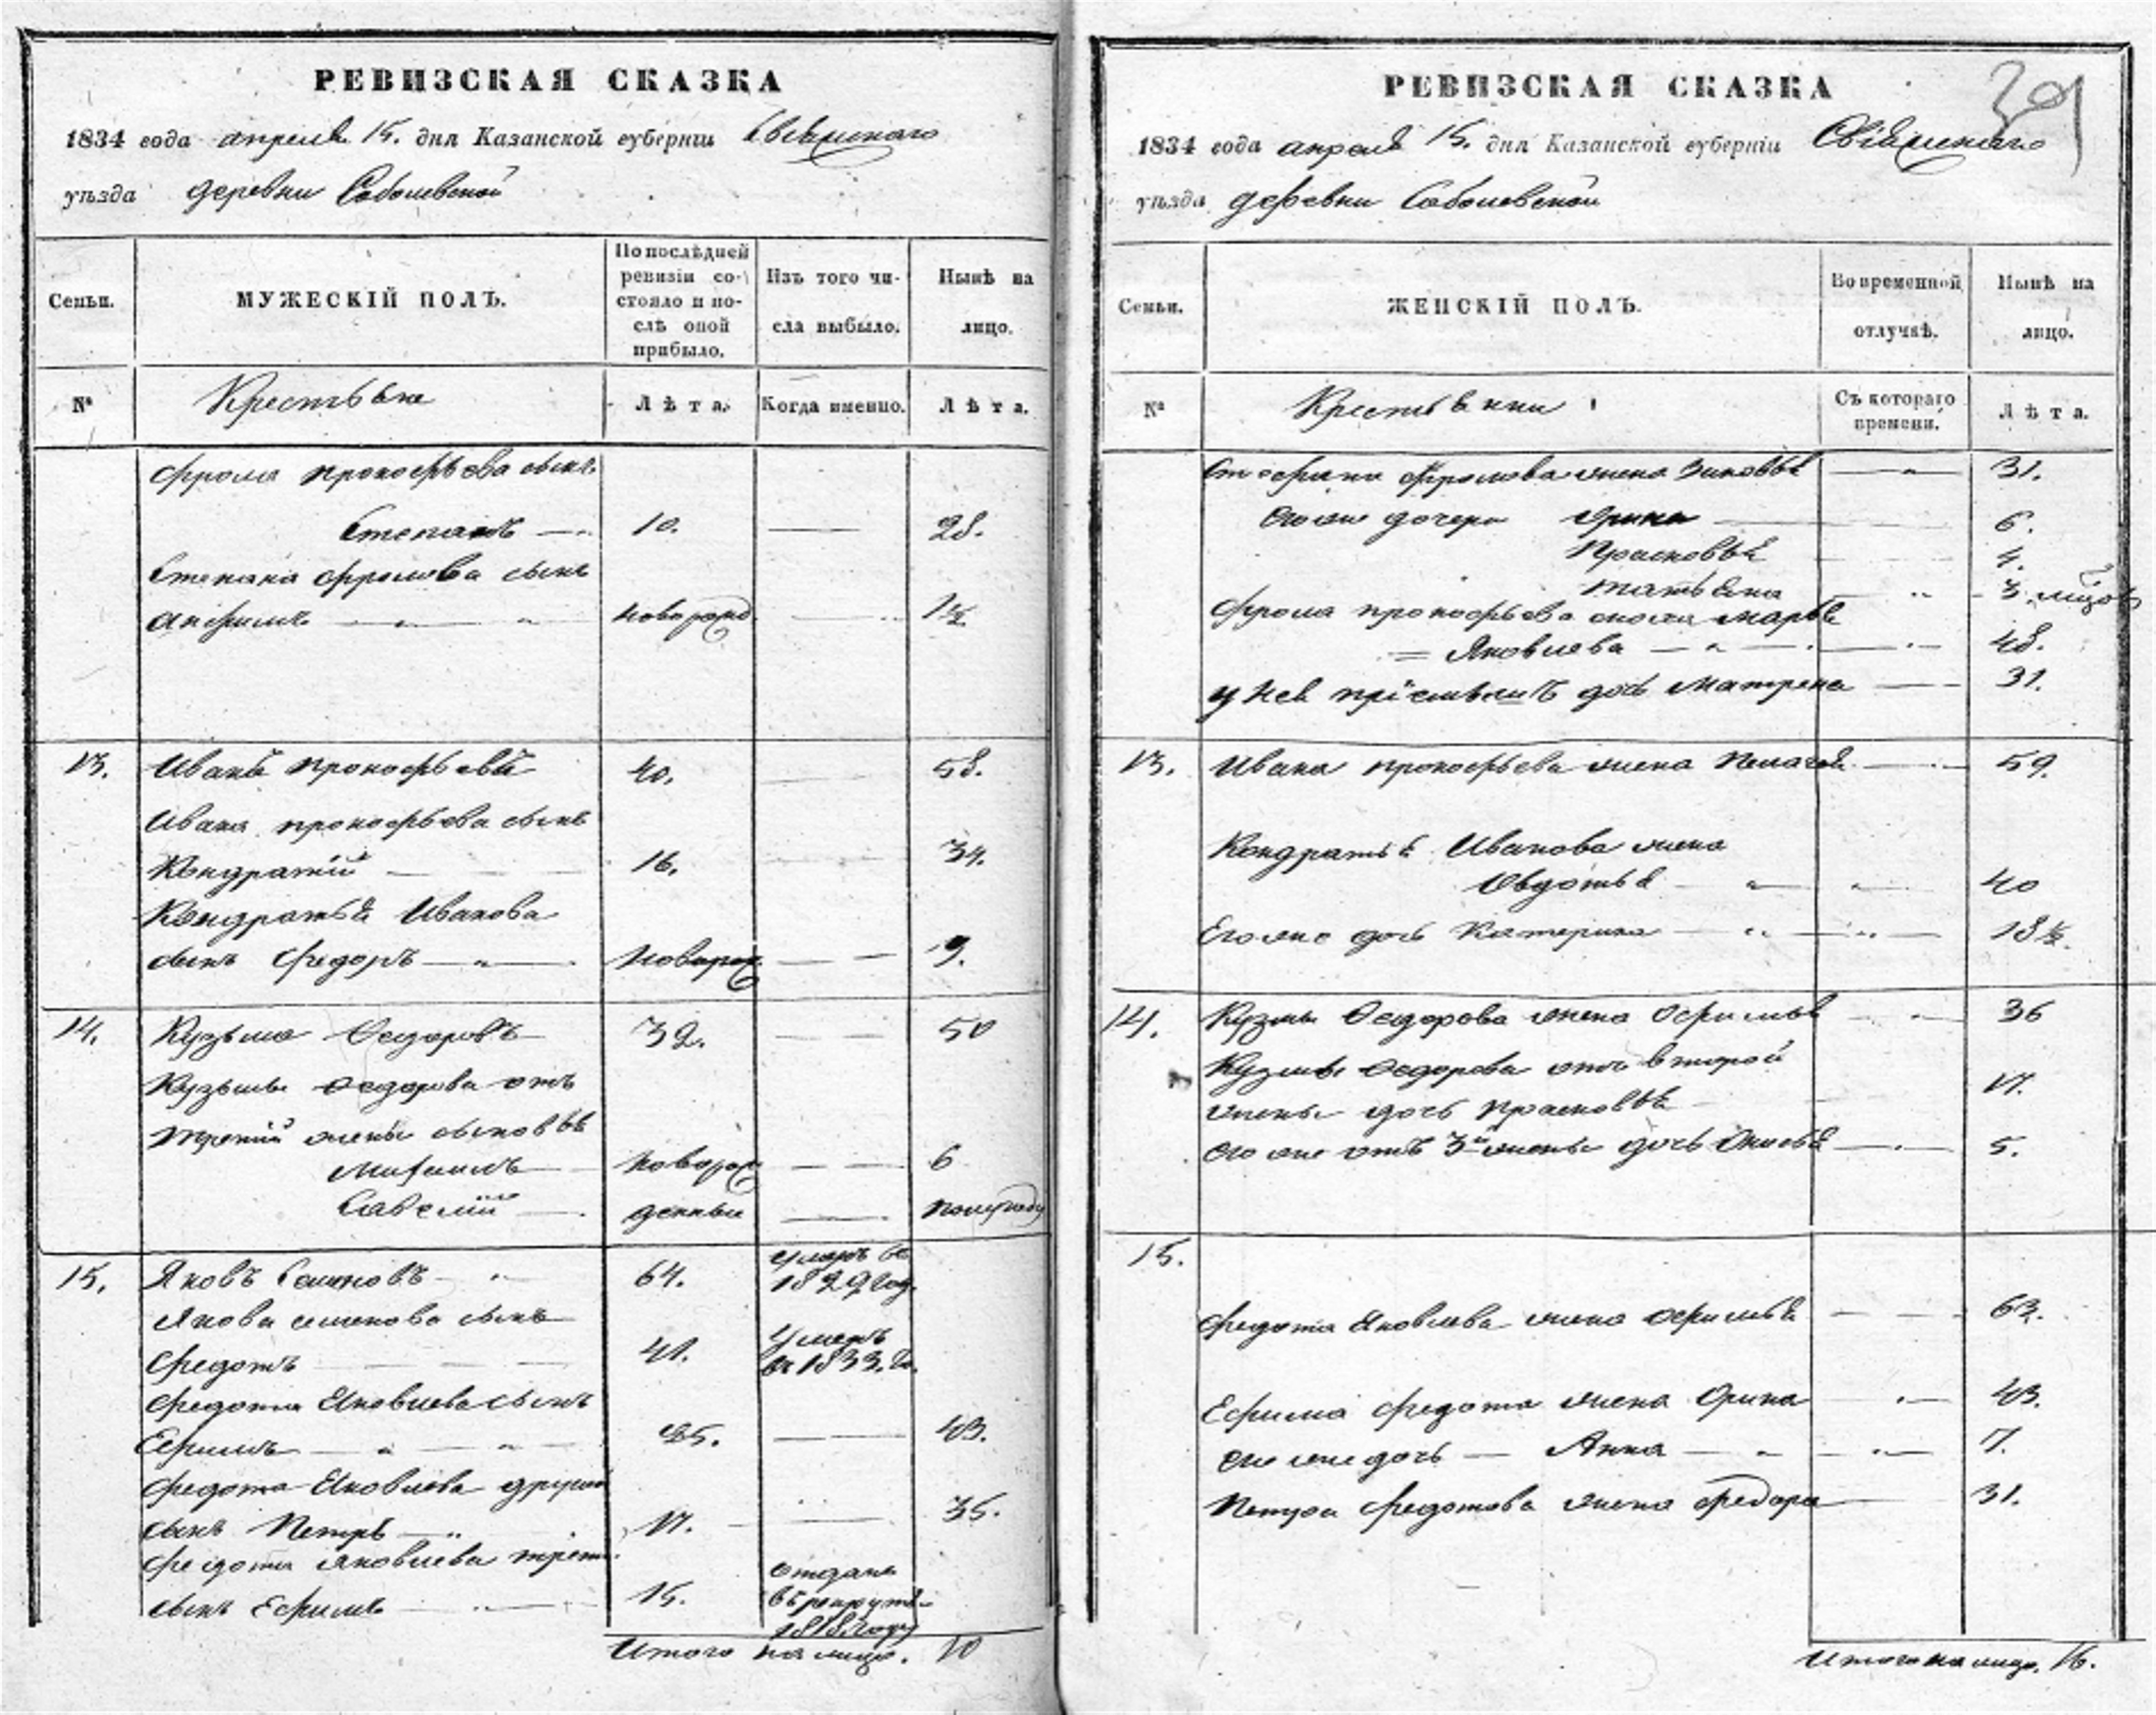 РЕВИЗСКАЯ СКАЗКА
1834 года апреля 15. дня Казанской губерніи Свіяжскаго
уѣзда деревни Соболевской
Семьи.
МУЖЕСКІЙ ПОЛЪ.
По послѣдней ревизіи состояло и послѣ оной прибыло.
Изъ того числа выбыло.
Нынѣ на лицо.
№
Крестьяне
Лѣта.
Когда именно.
Лѣта.
Фрола Прокофьева сынъ
Степанъ 10. 28.
Степана Фролова сынъ
Анфимъ новорожд. 1½
13. Иванъ Прокофьевъ 40. 58.
Ивана Прокофьева сынъ
Кондратій 16. 34.
Кондратья Иванова
сынъ Федоръ новорож. 9.
14. Кузьма Федоровъ 32. 50
Кузьмы Федорова отъ
третій жены сыновья
Михаилъ новорож 6
Савелій денныи полугоду
15. Яковъ Семеновъ 64. умеръ въ 1829 год.
Якова Семенова сынъ
Федотъ 41. умеръ въ 1833. го.
Федота Яковлева сынъ
Ефимъ 25. 43.
Федота Яковлева другой
сынъ Петръ 17. 35.
Федота Яковлева трети
сынъ Ефимъ 15. отданъ в рекруты 1818 году
Итого на лицо. 10
РЕВИЗСКАЯ СКАЗКА
1834 года апреля 15. дня Казанской губерніи Свіяжскаго
уѣзда деревни Соболевской
Семьи.
ЖЕНСКІЙ ПОЛЪ.
Во временной отлучкѣ.
Нынѣ на лицо.
№
Крестьянки
Съ котораго времени.
Лѣта.
Степана Фролова жена Зиновья 31.
Его же дочери Орина 6.
Прасковья 4.
Татьяна 3
Фрола Прокофьева жена Марья
Яковлева 48.
у нея дочь Матрена 31.
13. Ивана Прокофьева жена Пелагея 59.
Кондратья Иванова жена
Овдотья 40
Его же дочь Катерина 18½.
14. Кузмы Федорова жена Офимья 36
Кузмы Федорова отъ второй
жены дочь Прасковья 17.
Его же отъ 3й жены дочь 5.
15.
Федота Яковлева жена Офимья 63.
Ефима Федота жена Орина 43.
Его же дочь Анна 7.
Петра Федотова жена Федора 31.
Итого на лицо. 16.